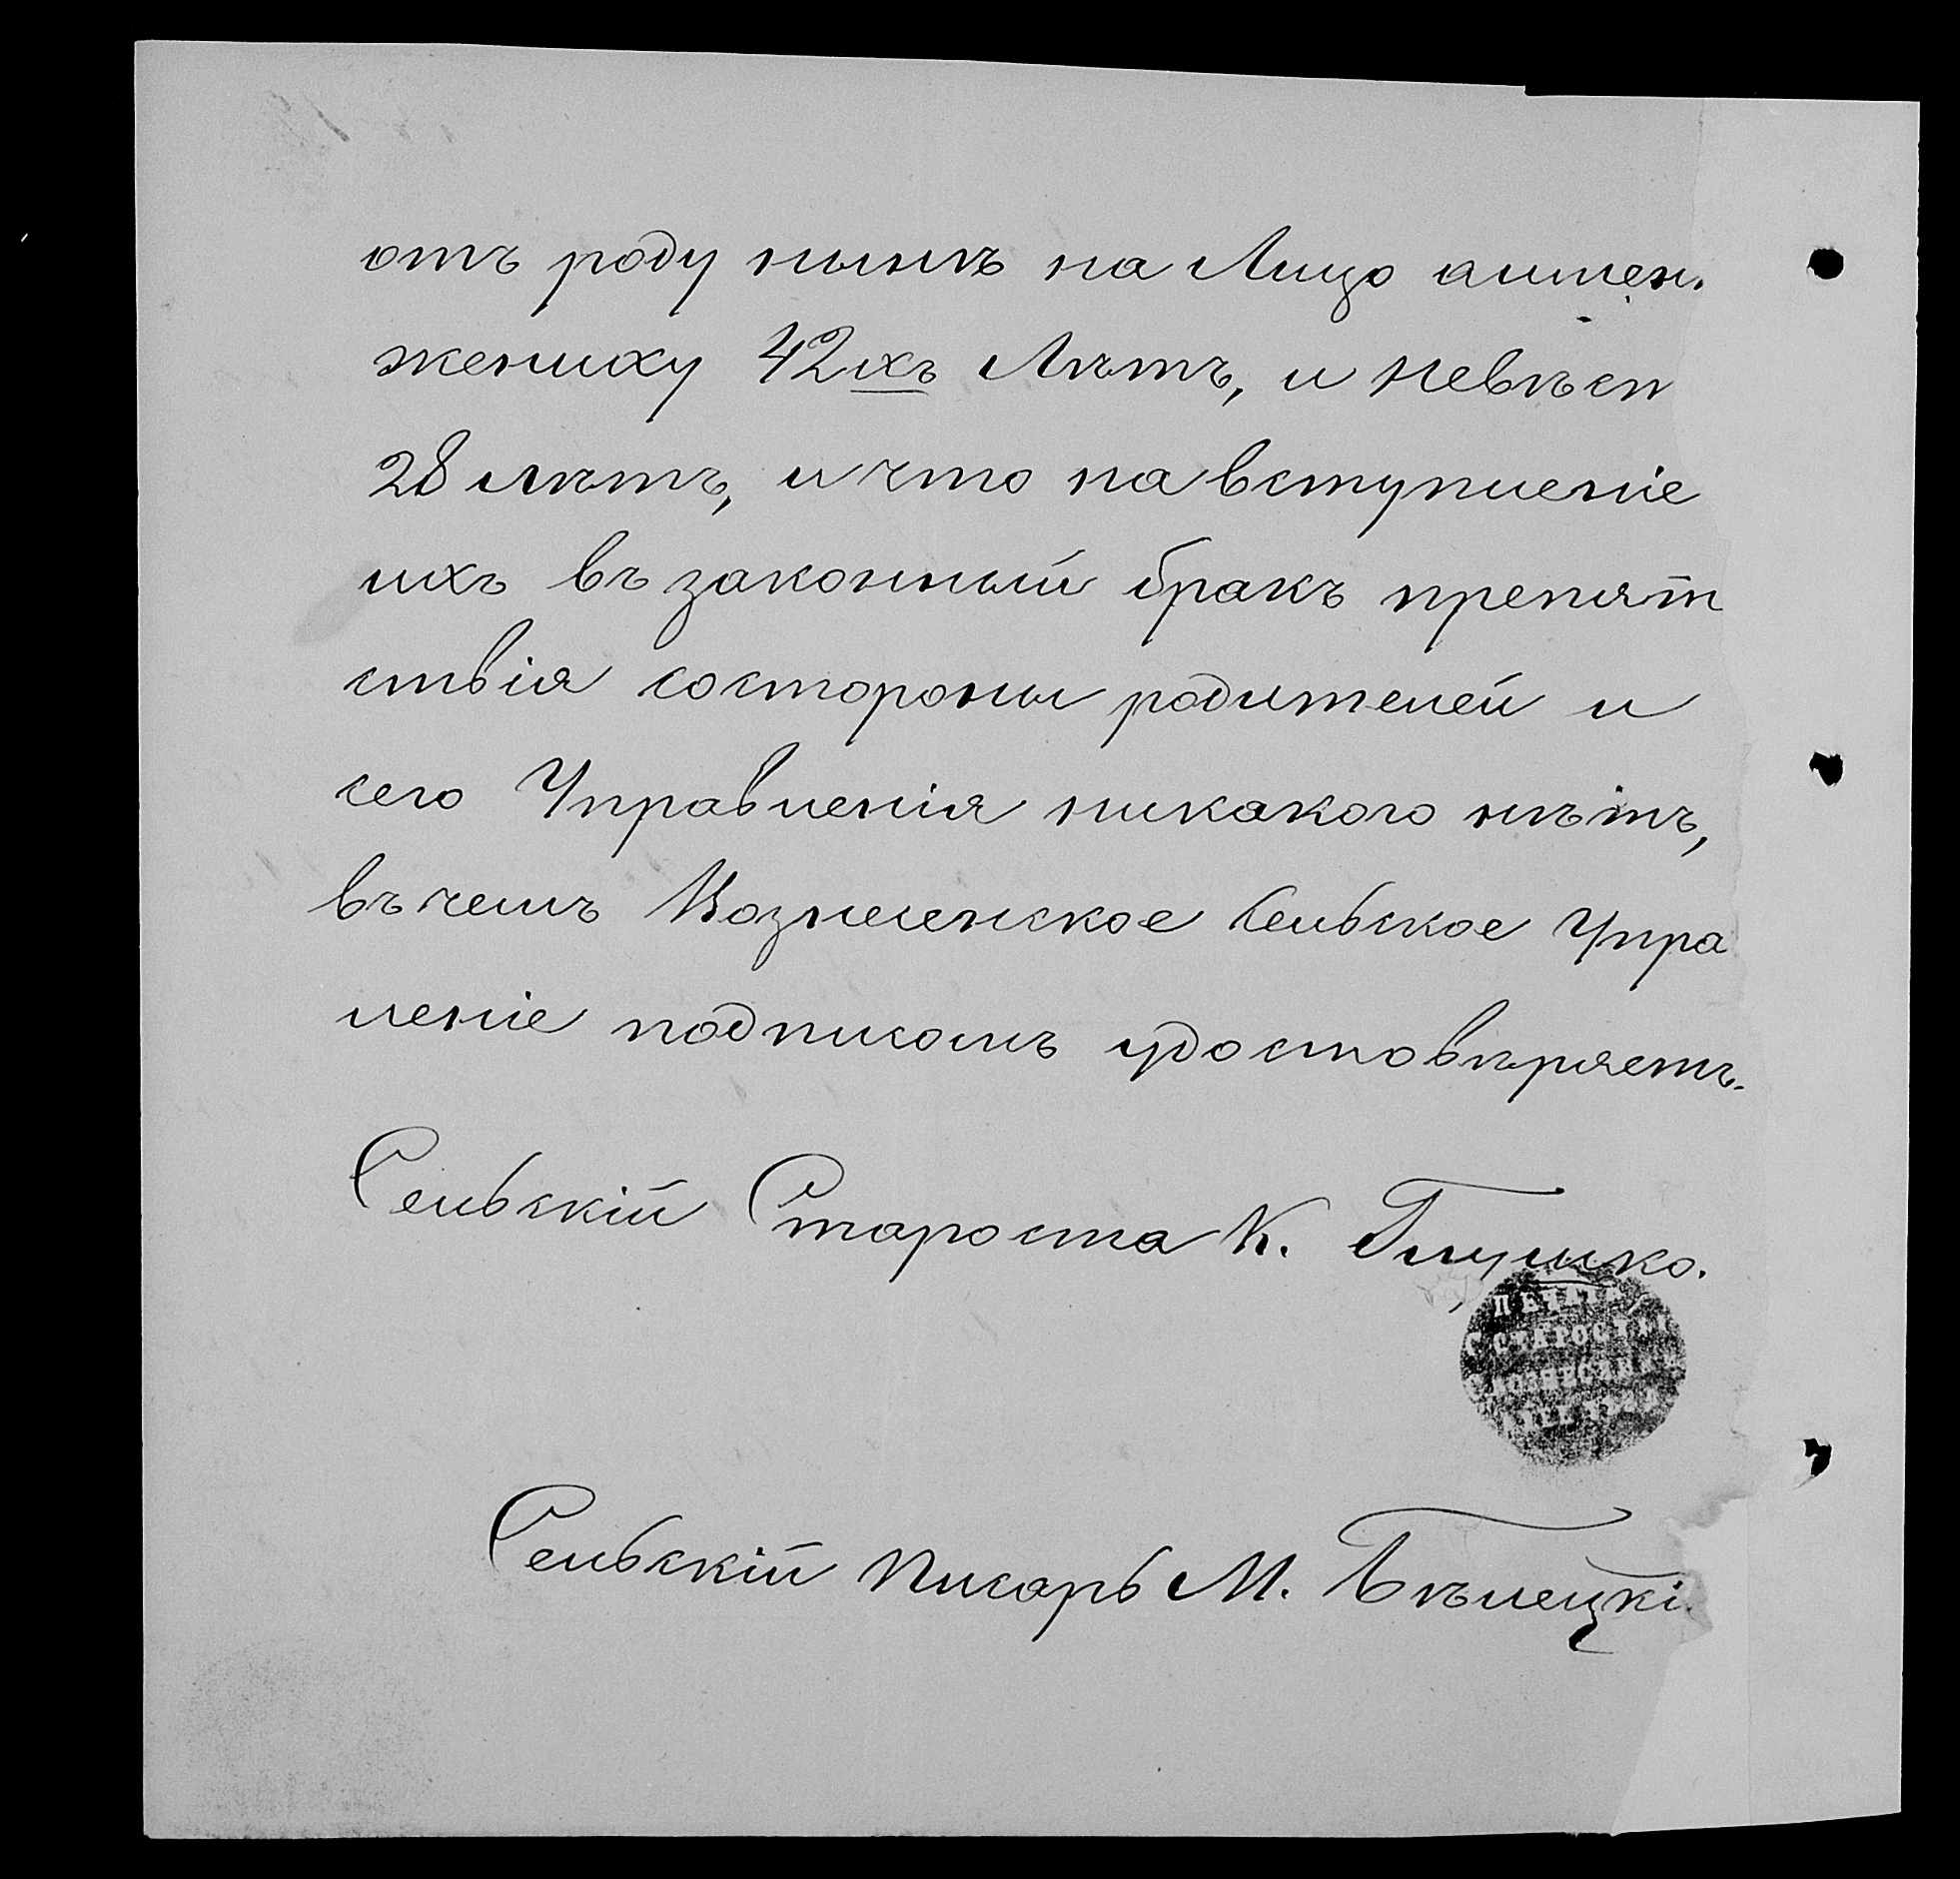 отъ роду нынѣ на Лицо
жениху 42хъ Лѣтъ, и невѣсп
28 лѣтъ, и что на вступленіе
ихъ въ законный бракъ препят
ствія состороны родителей и
сего Управленія никакого нѣтъ,
въ чемъ Вознесенское Сельское Упра
леніе подписомъ удостовѣряетъ.
Сельскій Староста К. Глушко.
ПЕЧАТЬ
Сельскій Писарь М. Бѣлецкі